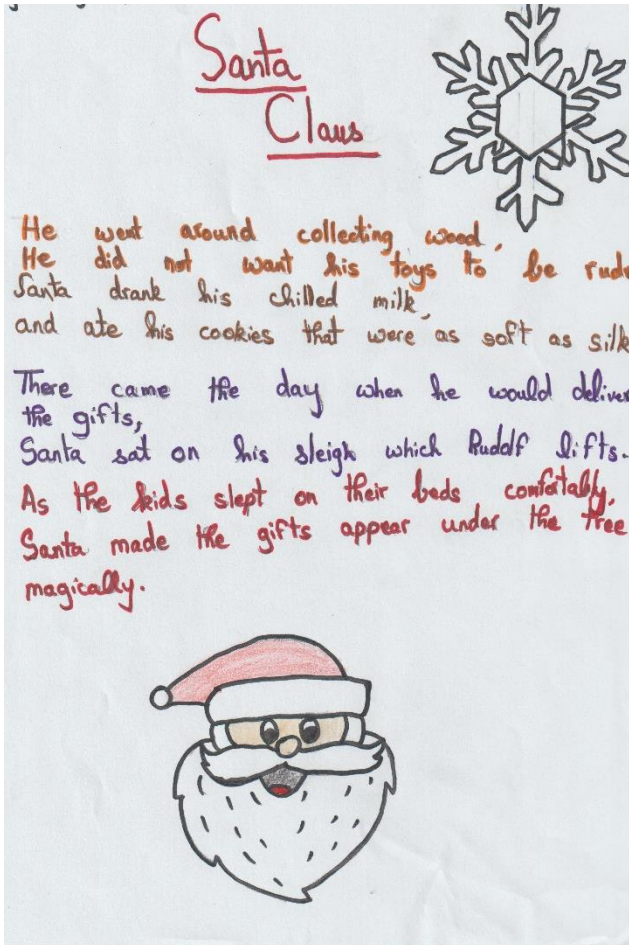 Santa
Claus
He went around collecting wood,
He did not want his toys to be rude
Santa drank his chilled milk,
and ate his cookies that were as soft as silk
There came the day when he would deliver
the gifts,
Santa sat on his sleigh which Rudolf lifts.
As the kids slept on their beds comfortably,
Santa made the gifts appear under the tree
magically.